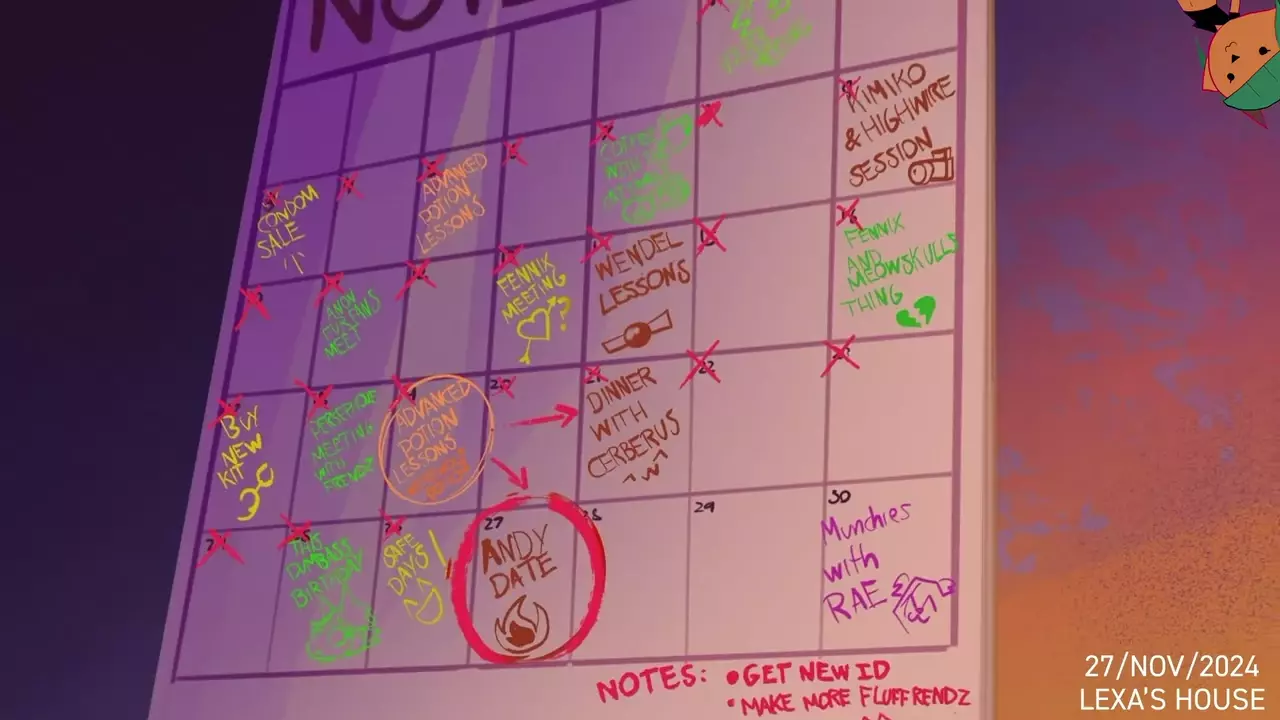 KIMIKO
& HIGHWIRE
SESSION
CONDOM
SALE
ADVANCED
POTION
LESSONS
COFFEE
WITH
FENNIX
MEETING
?
WENDEL
LESSONS
FENNIX
AND
MEOWSKULLS
THING
BUY
NEW
KIT
PERSEPHONE
MEETING
WITH
FRENDZ
ADVANCED
POTION
LESSONS
20
DINNER
WITH
CERBERUS
22
THIS
DUMBASS
BIRTHDAY
SAFE
DAYS!
27
ANDY
DATE
28
29
30
Munchies
with
RAE
NOTES: •GET NEW ID
•MAKE MORE FLUFFRENDZ
27/NOV/2024
LEXA'S HOUSE